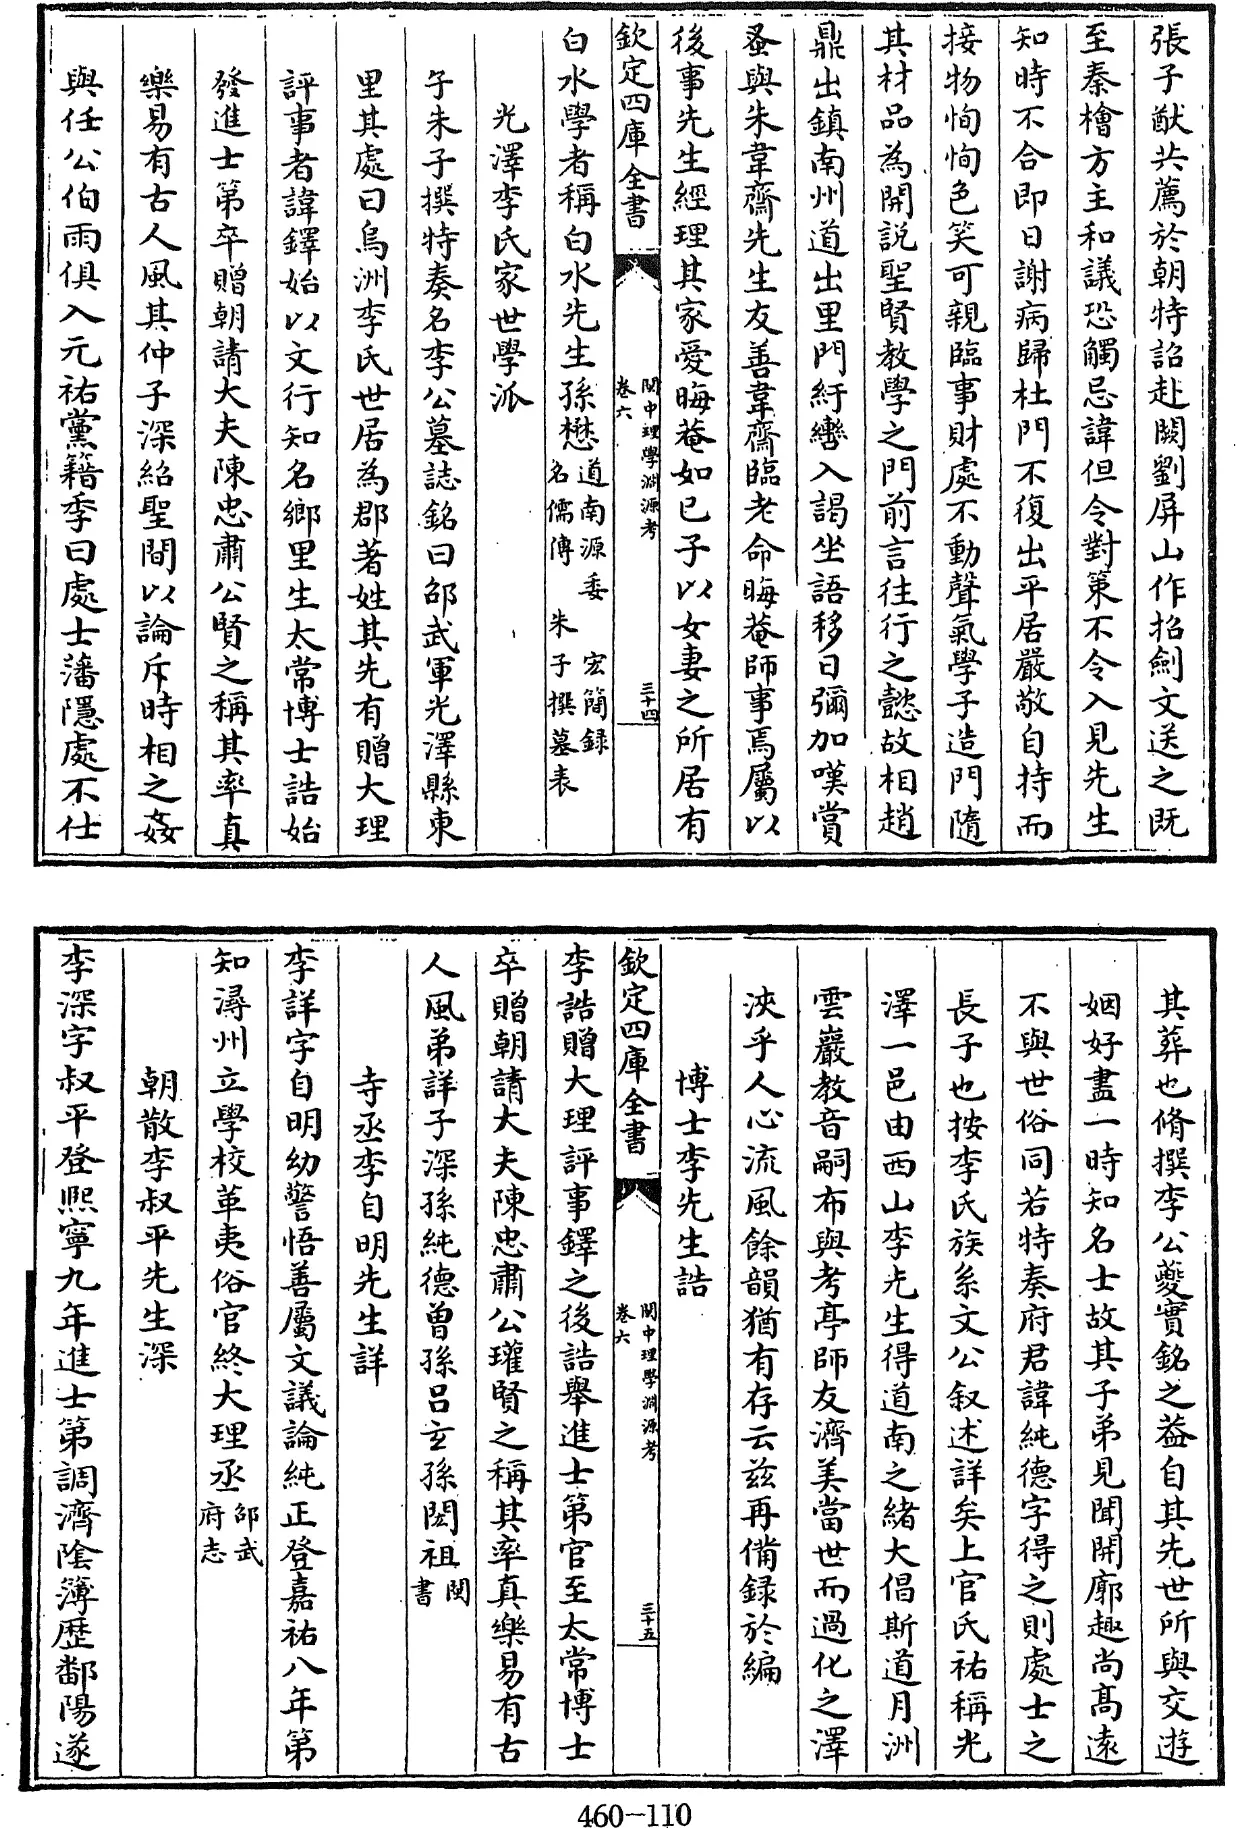 張子猷共薦於朝特詔赴闕劉屏山作招劍文送之既
至秦檜方主和議恐觸忌諱但令對策不令入見先生
知時不合即日謝病歸杜門不復出平居嚴敬自持而
接物恂恂色笑可親臨事財處不動聲氣學子造門隨
其材品為開説聖賢教學之門前言往行之懿故相趙
鼎出鎮南州道出里門紆轡入謁坐語移日彌加嘆賞
蚤與朱韋齋先生友善韋齋臨老命晦菴師事焉屬以
後事先生經理其家愛晦菴如已子以女妻之所居有
欽定四庫全書
閩中理學淵源考
卷六
三十四
白水學者稱白水先生孫懋道南源委 宏簡録
名儒傳 朱子撰墓表
光澤李氏家世學派
子朱子撰特奏名李公墓誌銘曰邵武軍光澤縣東
里其處曰烏洲李氏世居為郡著姓其先有贈大理
評事者諱鐸始以文行知名鄉里生太常博士誥始
發進士第卒贈朝請大夫陳忠肅公賢之稱其率真
樂易有古人風其仲子深紹聖間以論斥時相之姦
與任公伯雨俱入元祐黨籍季曰處士藩隱處不仕
其葬也脩撰李公夔實銘之益自其先世所與交遊
姻好盡一時知名士故其子弟見聞開廓趣尚髙遠
不與世俗同若特奏府君諱純德字得之則處士之
長子也按李氏族系文公叙述詳矣上官氏祐稱光
澤一邑由西山李先生得道南之緒大倡斯道月洲
雲巖教音嗣布與考亭師友濟美當世而過化之澤
浹乎人心流風餘韻猶有存云兹再備録於編
博士李先生誥
欽定四庫全書
閩中理學淵源考
卷六
三十五
李誥贈大理評事鐸之後誥舉進士第官至太常博士
卒贈朝請大夫陳忠肅公瓘賢之稱其率真樂易有古
人風弟詳子深孫純德曾孫呂玄孫閎祖閩書
寺丞李自明先生詳
李詳字自明幼警悟善屬文議論純正登嘉祐八年第
知潯州立學校革夷俗官終大理丞邵武府志
朝散李叔平先生深
李深字叔平登熙寧九年進士第調濟陰簿歴鄱陽遂
460-110